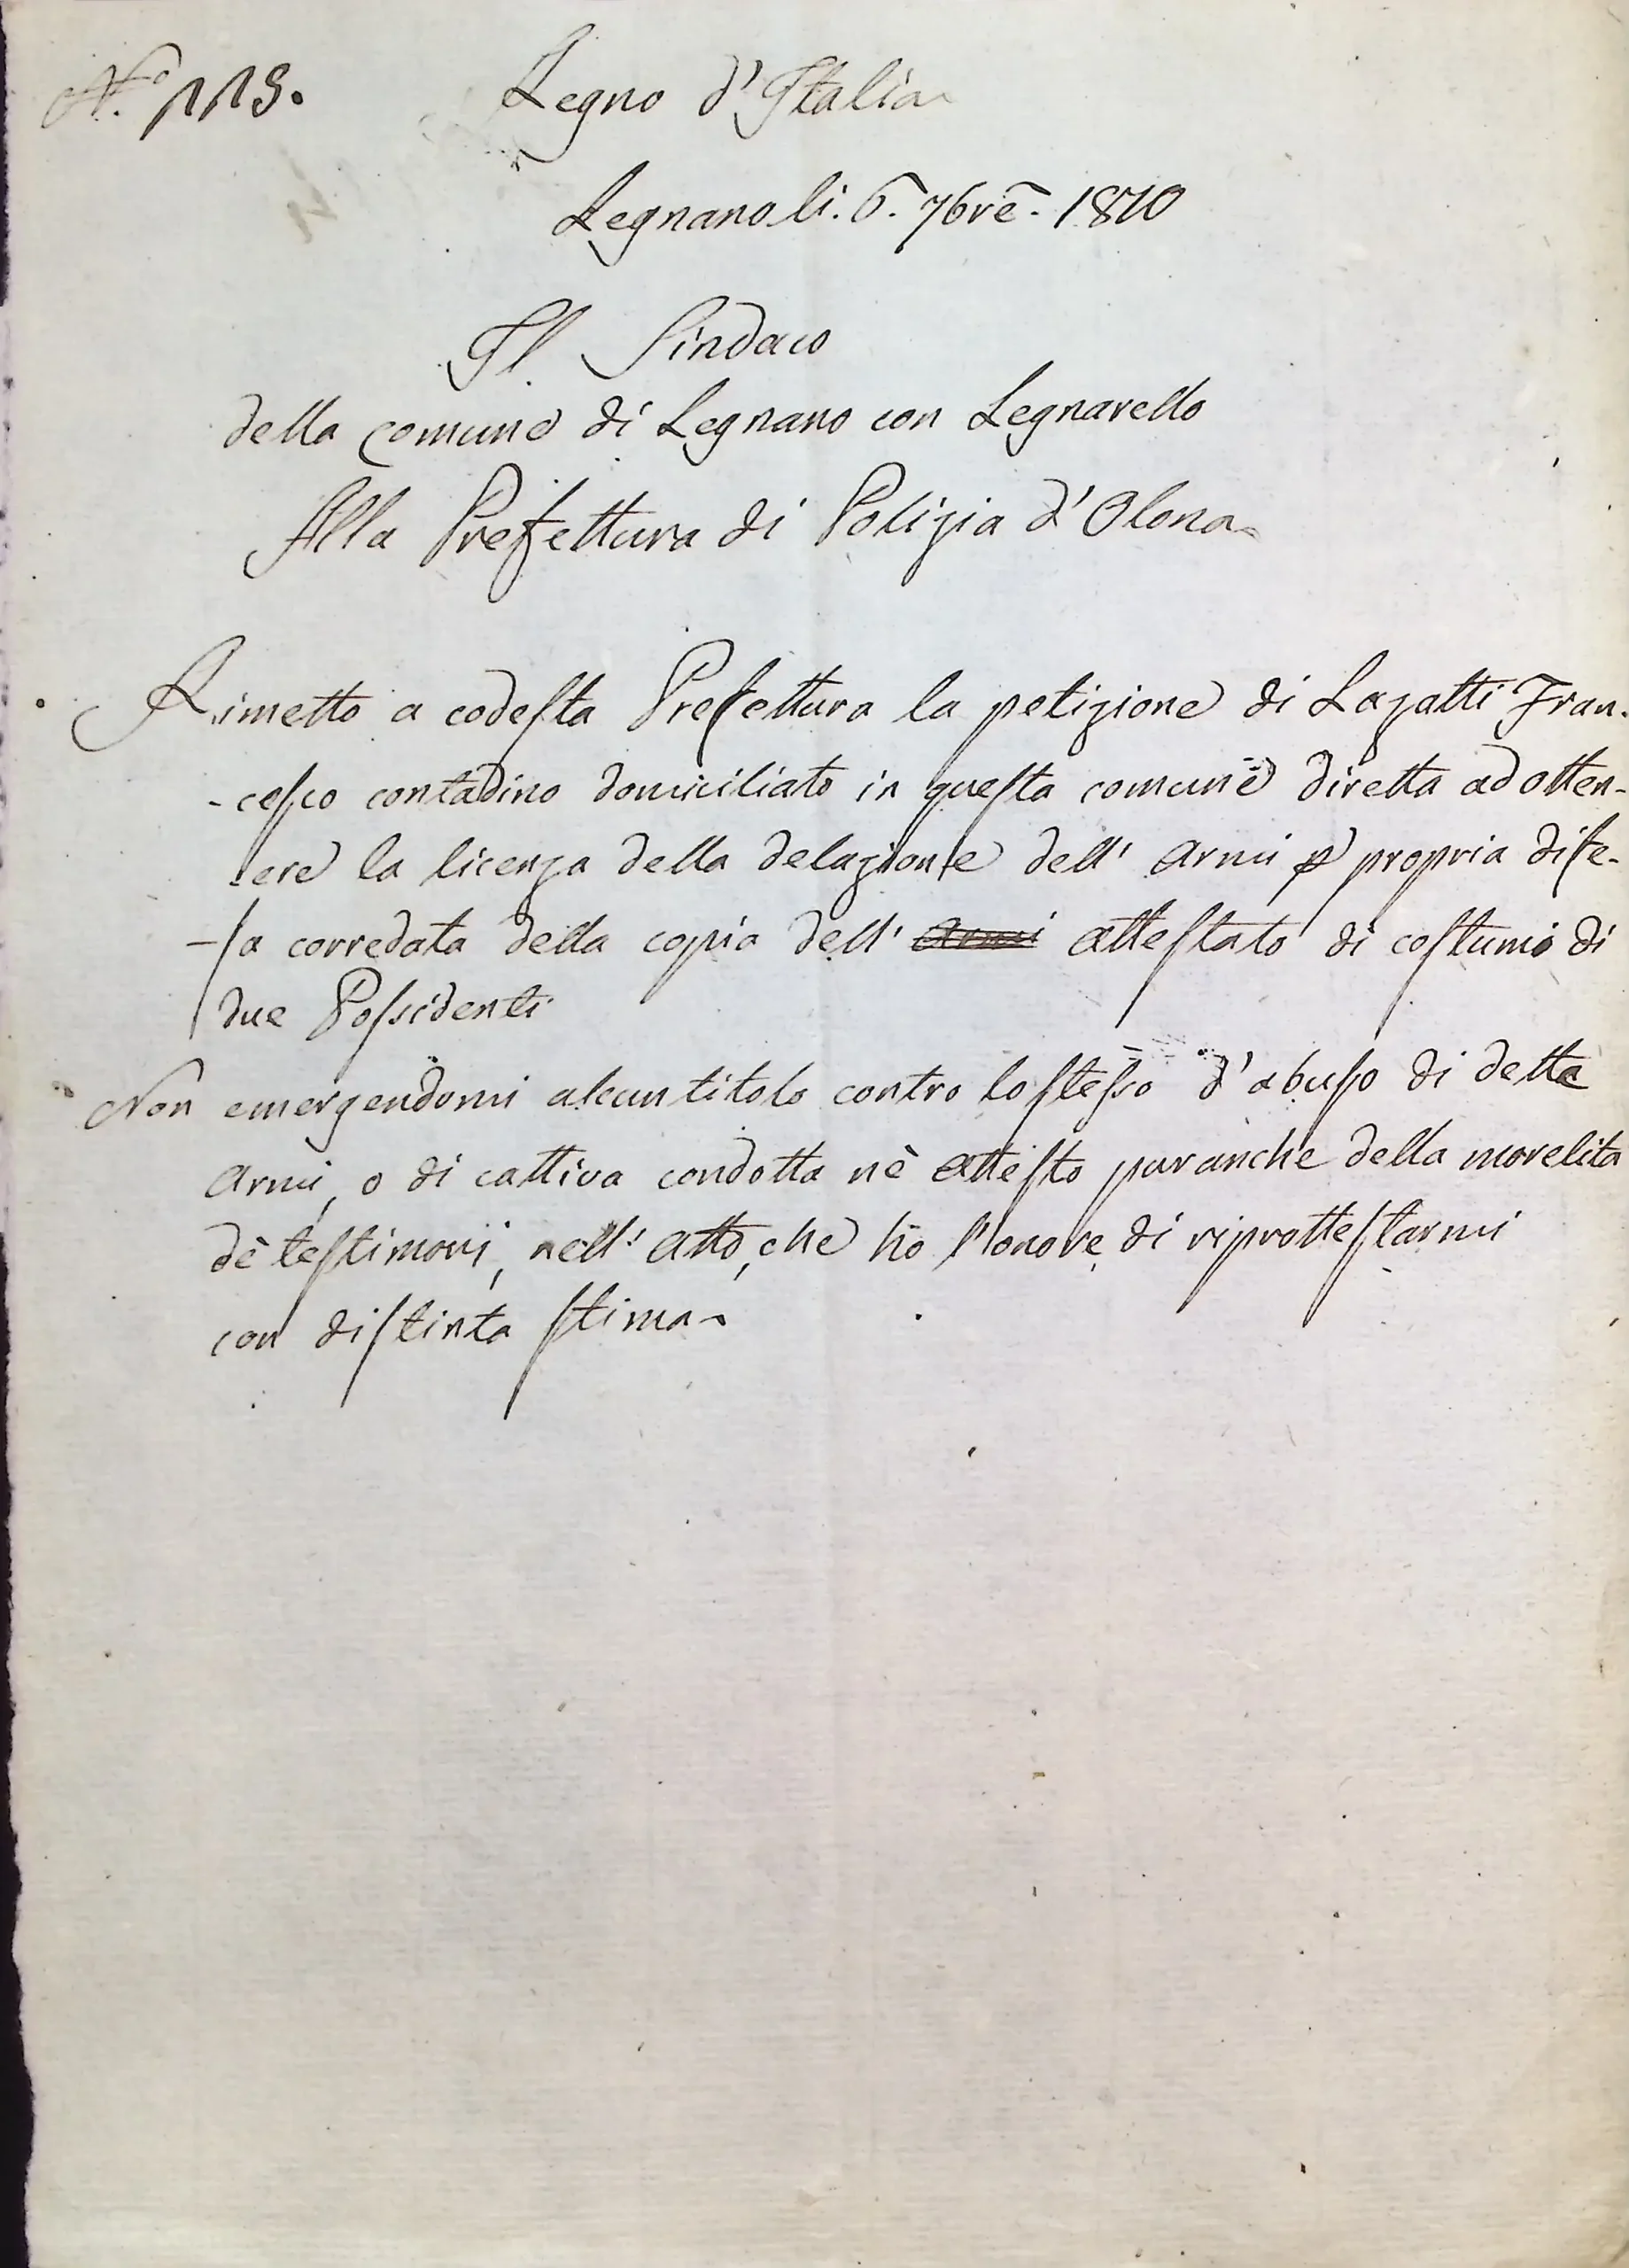 N.º 113.
Regno d'Italia
Legnano li. 6. 7bre. 1810
Il Sindaco
della comune di Legnano con Legnarello
Alla Prefettura di Polizia d'Olona
Rimetto a codesta Prefettura la petizione di Lazatti Fran-
-cesco contadino domiciliato in questa comune diretta ad otten-
ere la licenza della delazione dell' Armi p propria dife-
-sa corredata della copia dell' Armi attestato di costumi di
due Possidenti
Non emergendomi alcun titolo contro lo stesso d'abuso di dette
Armi, o di cattiva condotta nè attesto pur anche della morelita
dè testimonj, nell' Atto, che hò l'onore di riprottestarmi
con distinta stima